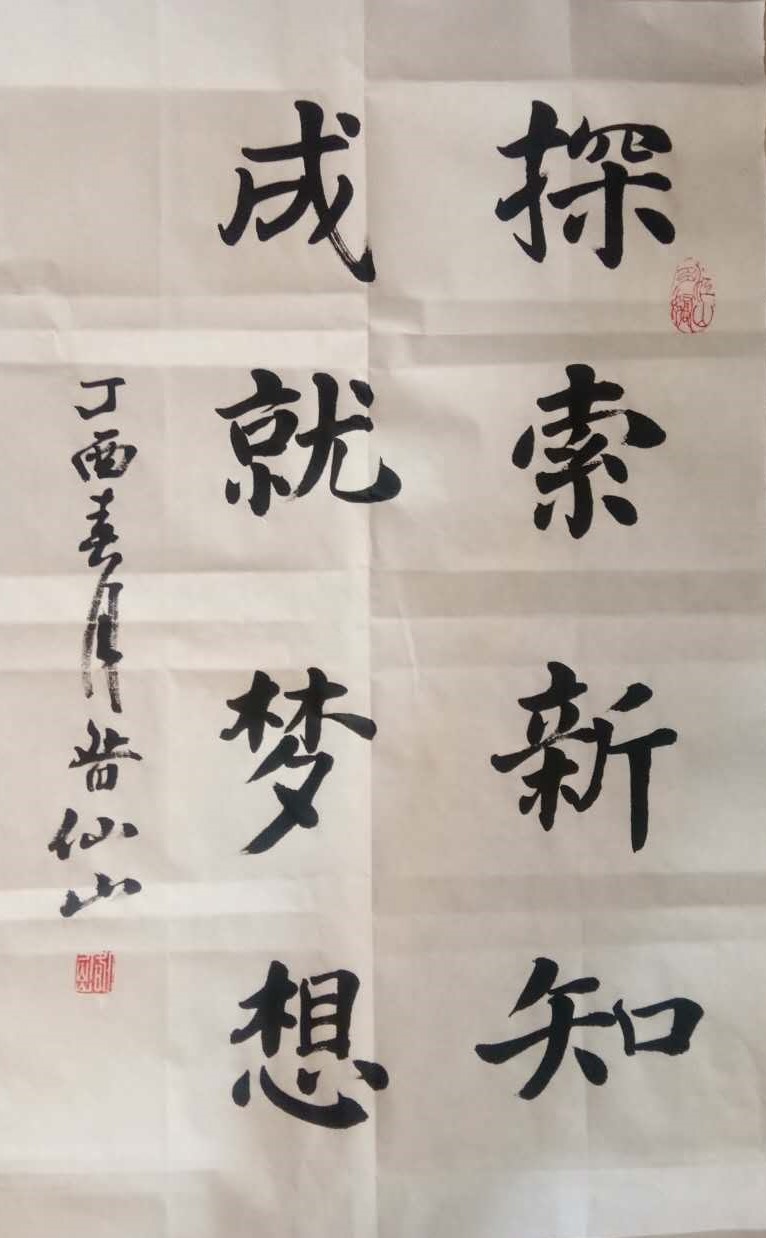 探索新知
成就梦想
丁酉春月晋仙山